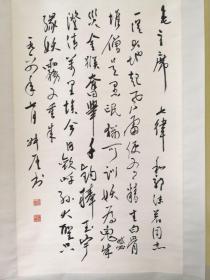 毛主席 七律 和郭沫若同志
一從大地起风雷便有精生白骨
堆僧是愚氓猶可训妖為鬼蜮必成
災金猴奮举千钧棒玉宇
澄清万里埃今日欢呼孙大聖只
缘妖雾又重来
年七月 书